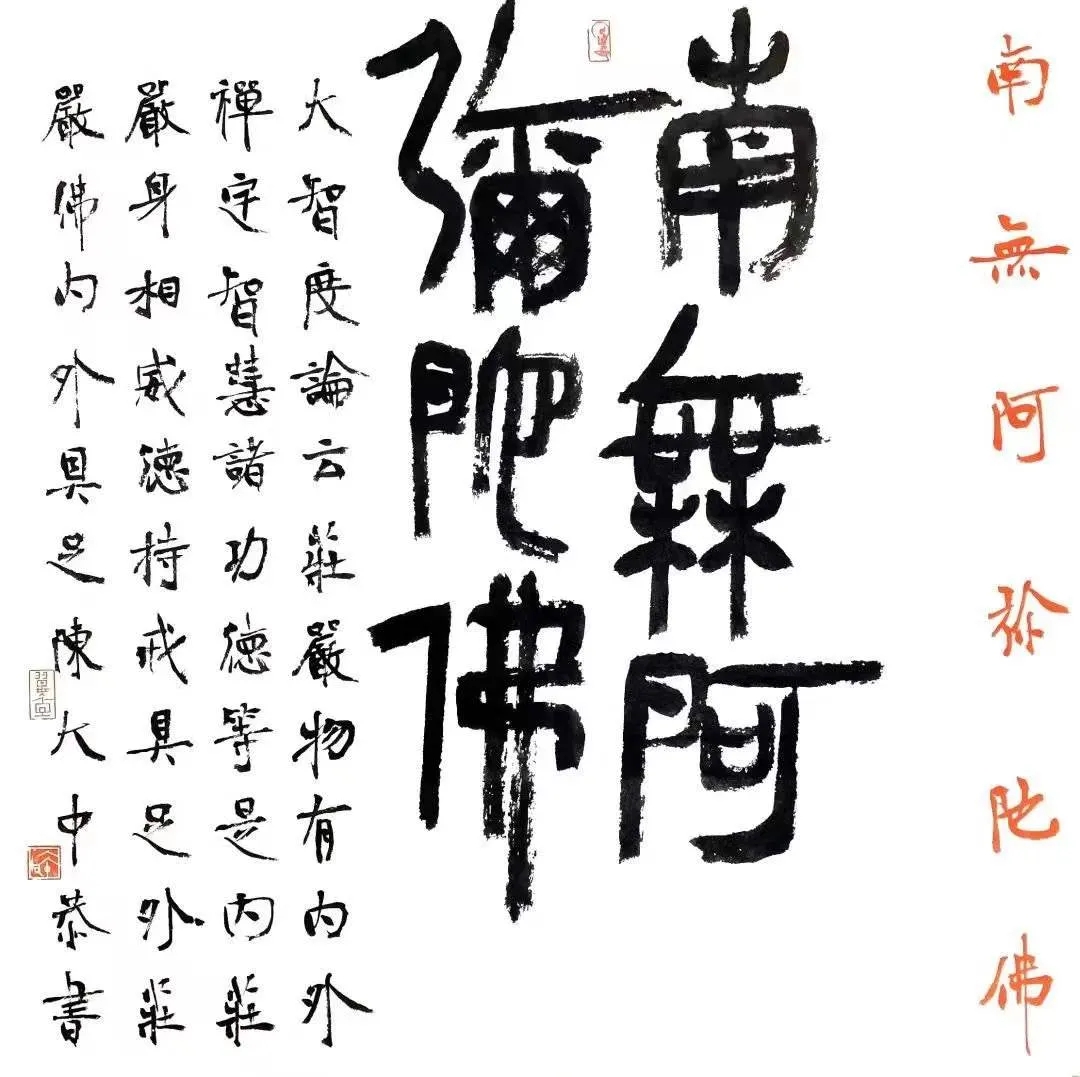 南無阿弥陀佛
南無阿
彌陀佛
大智度論云莊嚴物有内外
禪定智慧諸功德等是内莊
嚴身相威德持戒具足外莊
嚴佛内外具足陳大中恭書